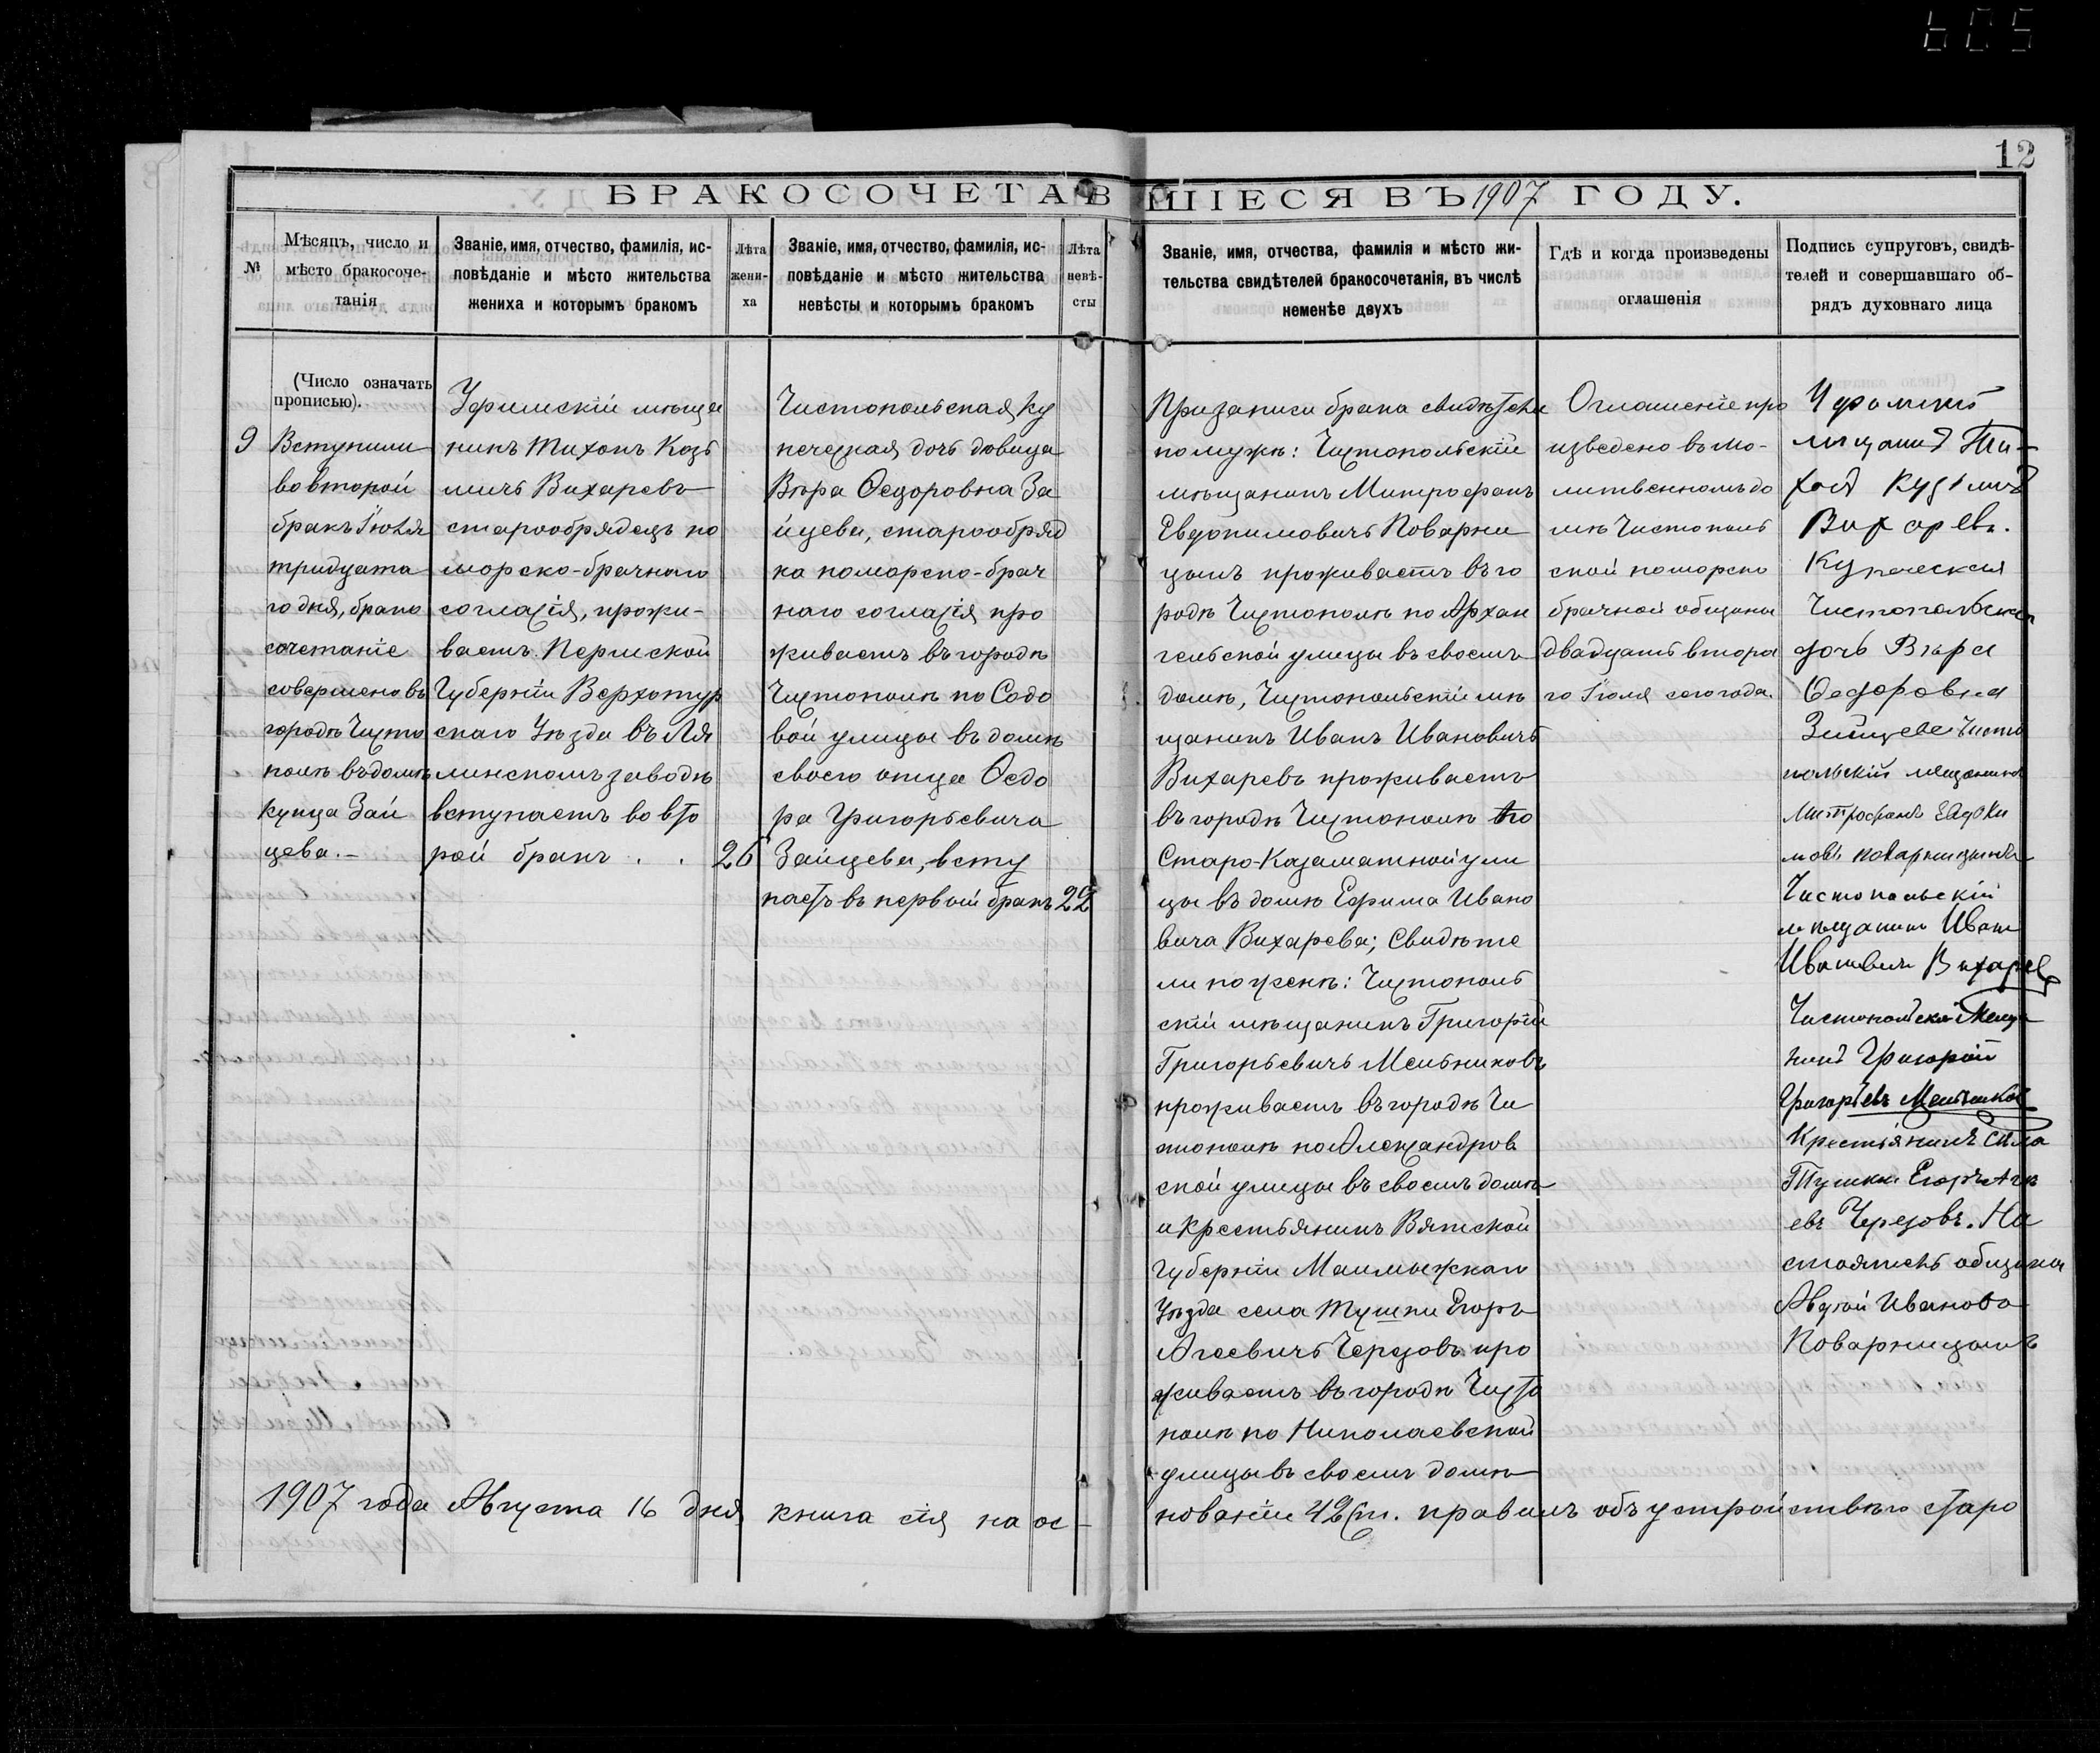 605
12
БРАКОСОЧЕТАВШІЕСЯ ВЪ 1907 ГОДУ.
№
Мѣсяцъ, число и
мѣсто бракосоче-
танія
Званіе, имя, отчество, фамилія, ис-
повѣданіе и мѣсто жительства
жениха и которымъ бракомъ
Лѣта
жени-
ха
Званіе, имя, отчество, фамилія, ис-
повѣданіе и мѣсто жительства
невѣсты и которымъ бракомъ
Лѣта
невѣ-
сты
Званіе, имя, отчества, фамилія и мѣсто жи-
тельства свидѣтелей бракосочетанія, въ числѣ
неменѣе двухъ
Гдѣ и когда произведены
оглашенія
Подпись супруговъ, свидѣ-
телей и совершавшаго об-
рядъ духовнаго лица
(Число означать
прописью).
9
Вступили
во второй
бракъ Іюля
тридцата
го дня, брако
сочетаніе
совершено въ
городѣ Чисто
полѣ въ домѣ
купца Зай
цева.-
Уфимскій мѣща
нинъ Тихонъ Козь
мичъ Вихаревъ
старообрядецъ по
морско-брачнаго
согласія, прожи-
ваетъ Пермской
Губерніи Верхотур
скаго Уѣзда въ Ля
линскомъ заводѣ
вступаетъ во вто
рой бракъ . .
26
Чистопольская ку
печеская дочь дѣвица
Вѣра Ѳедоровна За
йцева, старообряд
ка поморско-брач
наго согласія про
живаетъ въ городѣ
Чистополѣ по Садо
вой улицы въ домѣ
своего отца Ѳедо
ра Григорьевича
Зайцева, всту
паетъ въ первый бракъ
22
При записи брака свидѣтели
по мужѣ: Чистопольскій
мѣщанинъ Митрофанъ
Евдокимовичъ Поварни
цынъ проживаетъ въ го
родѣ Чистополѣ по Архан
гельской улицы въ своемъ
домѣ, Чистопольскій мѣ
щанинъ Иванъ Ивановичъ
Вихаревъ проживаетъ
въ городѣ Чистополѣ по
Старо-Казаматной ули
цы въ домѣ Ефима Ивано
вича Вихарева; Свидѣте
ли по женѣ: Чистополь
скій мѣщанинъ Григорій
Григорьевичъ Мельниковъ
проживаетъ въ городѣ Чи
стополѣ по Александров
ской улицы въ своемъ домѣ
и крестьянинъ Вятской
Губерніи Малмыжскаго
Уѣзда села Тушки Егоръ
Агеевичъ Черезовъ про
живаетъ въ городѣ Чисто
полѣ по Николаевской
улицы въ своемъ домѣ
Оглашеніе про
изведено въ мо-
литвенномъ до
мѣ Чистополь
ской поморско
брачной общины
двадцать второ
го Іюля сего года.
мищанинъ Ти-
Вихоревъ.
Купеческая
Чистопольска
дочь Вѣра
Ѳедоровна
Зайцева Чисто
польскій мещанинъ
Митрофанъ Евдоки
мовъ Поварницынъ
Чистопольскій
мѣщанинъ Иванъ
Ивановичъ Вихаревъ
Чистопольской Меща
нинъ Григорій
Григорьевъ Мельниковъ
Крестьянинъ Села
Тушки Егоръ Аге
евъ Черезовъ. На
стоятель общины
Авдѣй Иванова
Поварницынъ
1907 года Августа 16 дня книга сія на ос-
нованіи 42 ст. правилъ объ устройствѣ старо